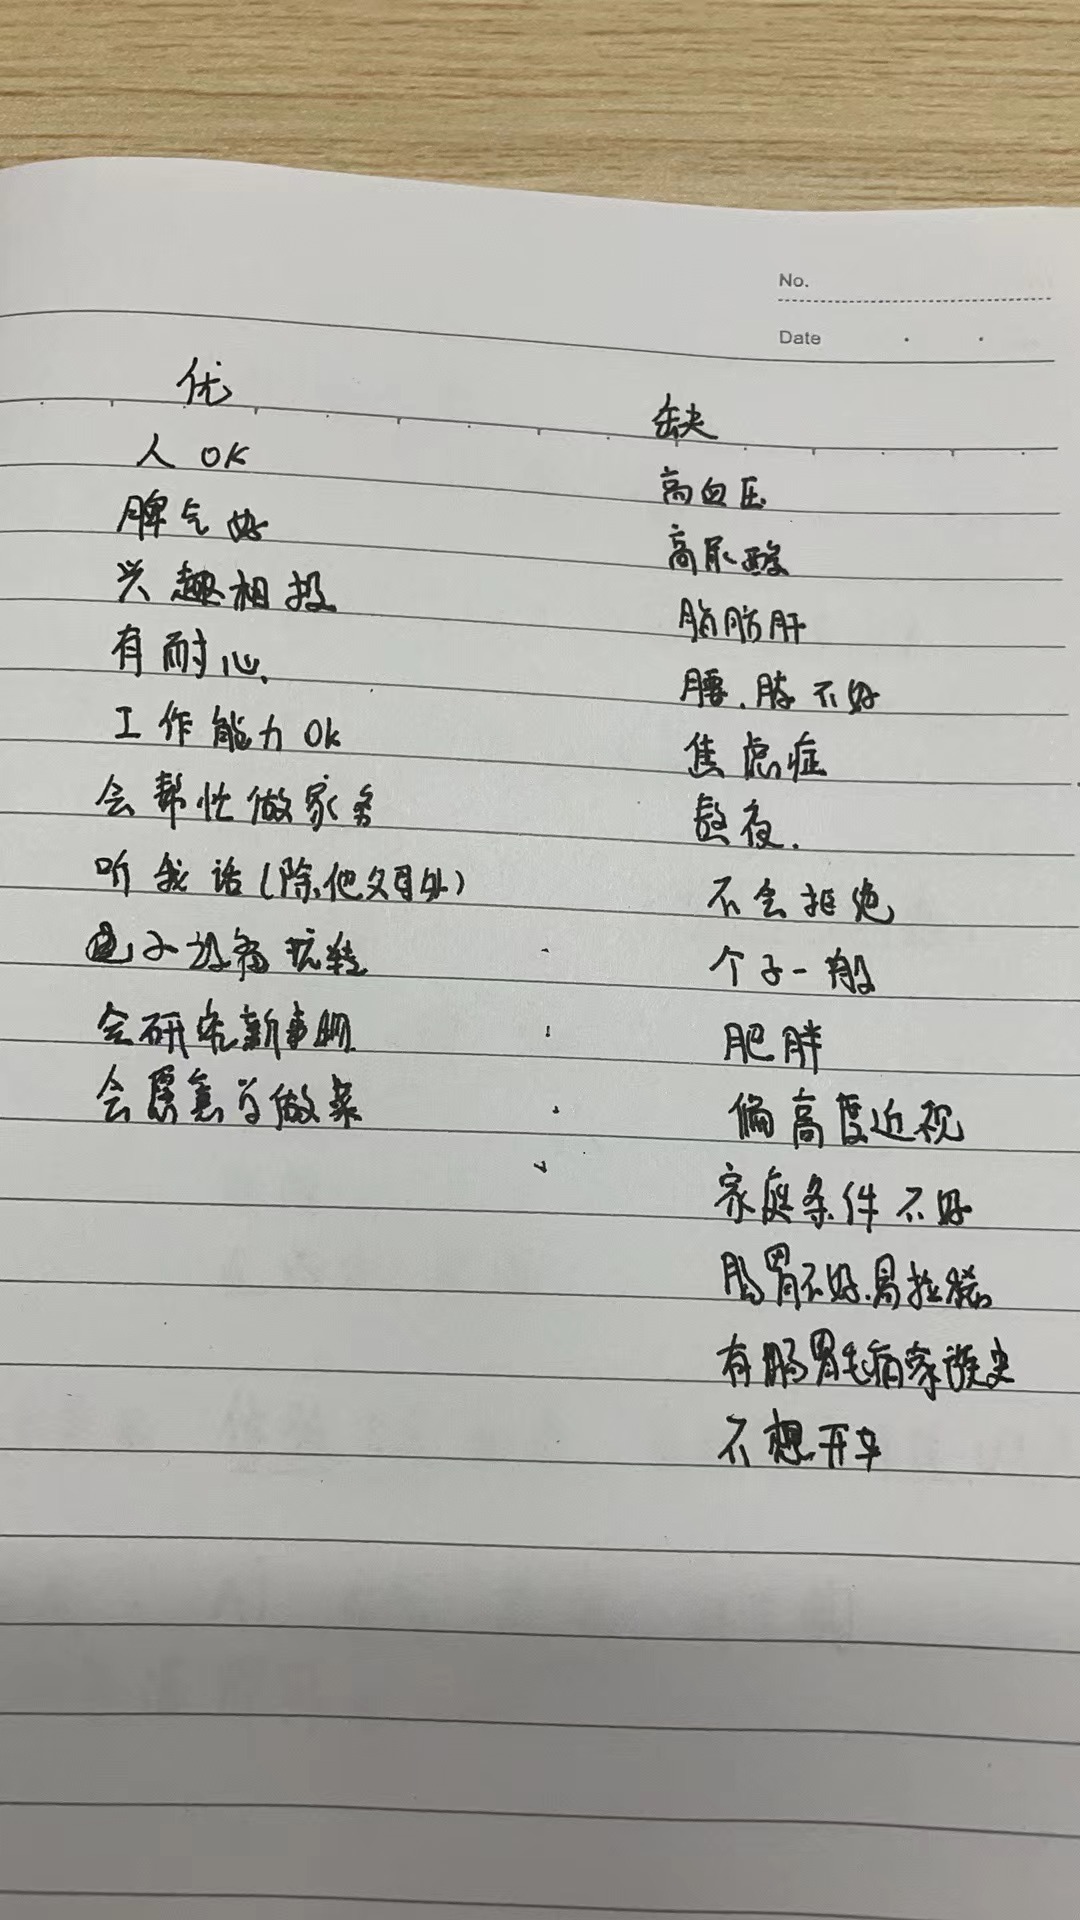 No.
Date
优
人 OK
脾气好
兴趣相投
有耐心、
工作能力Ok
会帮忙做家务
听我话(除他父母外)
电子设备玩转
会研究新事物
会愿意学做菜
缺
高血压
高尿酸
脂肪肝
腰、膝不好
焦虑症
熬夜.
不会拒绝
个子一般
肥胖
偏高度近视
家庭条件不好
肠胃不好.易拉
有肠胃毛病家族史
不想开车